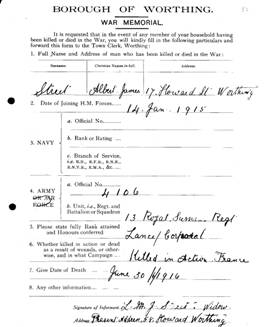 BOROUGH OF WORTHING.
WAR MEMORIAL.
It is requested that in the event of any member of your household having
been killed or died in the War, you will kindly fill in the following particulars and
forward this form to the Town Clerk, Worthing:
1. Full Name and Address of man who has been killed or died in the War:
Surname Christian Names in full Address
Street Albert James 17, Howard St Worthing
2. Date of Joining H.M. Forces
14 Jan. 1915
a. Official No.
3. NAVY
b. Rank or Rating
c. Branch of Service,
i.e. R.N., R.F.R., R.N.R.,
R.N.V.R., R.M.A., &c.
4. ARMY
OR AIR
FORCE
a. Official No.
4106
b. Unit, i.e., Regt. and
Battalion or Squadron
13 Royal Regt
5. Please state fully Rank attained
and Honours conferred
Lance/Corporal
6. Whether killed in action or dead
as a result of wounds, or other-
wise, and in what Campaign
Killed in Action. France
7. Give Date of Death
June 30 1916
8. Any other information
Signature of Informant Widow
Address Present Address Howard Worthing